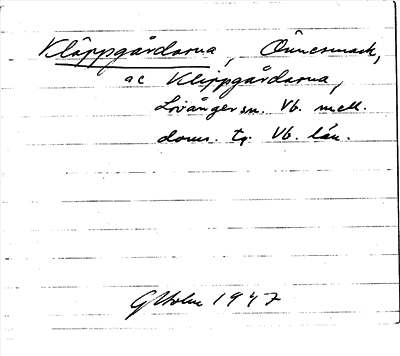 Kläppgårdarna, Önnesmark,
ac Klippgårdarna,
Lövånger sn. Vb. mell.
doms. tg. Vb. län.
GHolm 1947